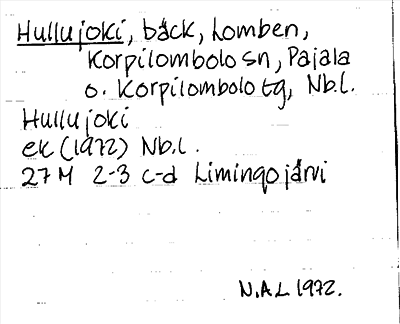 Hullujoki, bäck, Lomben,
Korpilombolo sn, Pajala
o. Korpilombolo tg, Nb.l.
Hullujoki
ek (1972) Nb.l.
27 M 2-3 c-d Limingojärvi
N.A.L 1972.